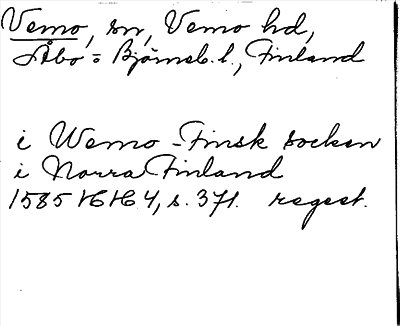 Vemo, sn, Vemo hd,
Åbo = Björneb. l., Finland
i Wemo - Finsk socken
i Norra Finland
1585 16/6 4, s. 371. regest.